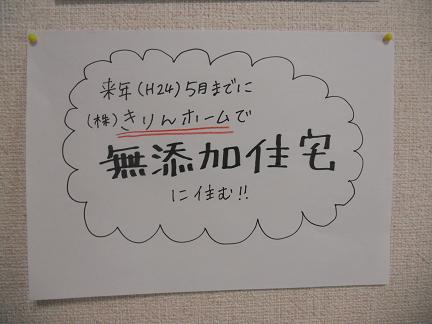 来年(H24)5月までに
(株)きりんホームで
無添加住宅
に住む!!